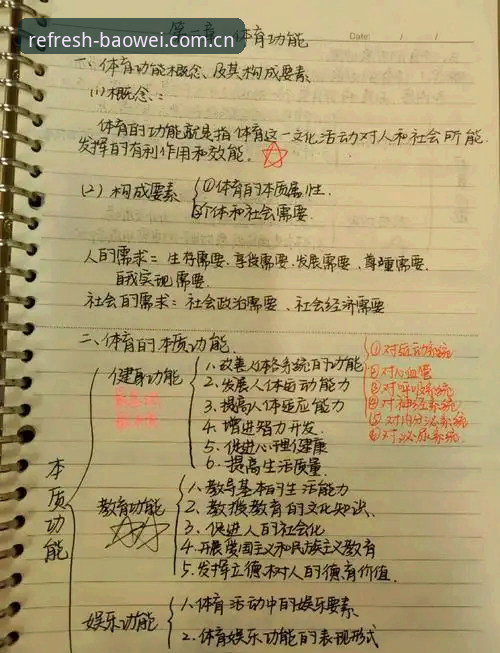 refresh-baowei.com.cn
Date:
第二章 体育功能
一、体育功能概念、及其构成要素
(1)概念:
体育的功能就是指体育这一文化活动对人和社会所能
发挥的有利作用和效能。
(2) 构成要素
①体育的本质属性.
②个体和社会需要.
人的需求= 生存需要.享受需要.发展需要、尊重需要.
自我实现需要.
社会的需求: 社会政治需要、社会经济需要
二、体育的本质功能.
本质功能
健身功能
1.改善人体各系统的功能
2.发展人体运动能力
3.提高人体适应能力
4.增进智力开发.
5.促进心理健康
6.提高生活质量.
①对运动系统
②对心血管
③对呼吸系统
④对神经系统
⑤对内分泌系统
⑥对泌尿系统
教育功能
1.教导基本的生活能力
2.教授教育的文化知识.
3.促进人的社会化
4.开展爱国主义和民族主义教育
5.发挥立德树人的德育价值.
娱乐功能
1.体育活动中的娱乐要素.
2.体育娱乐功能的表现形式